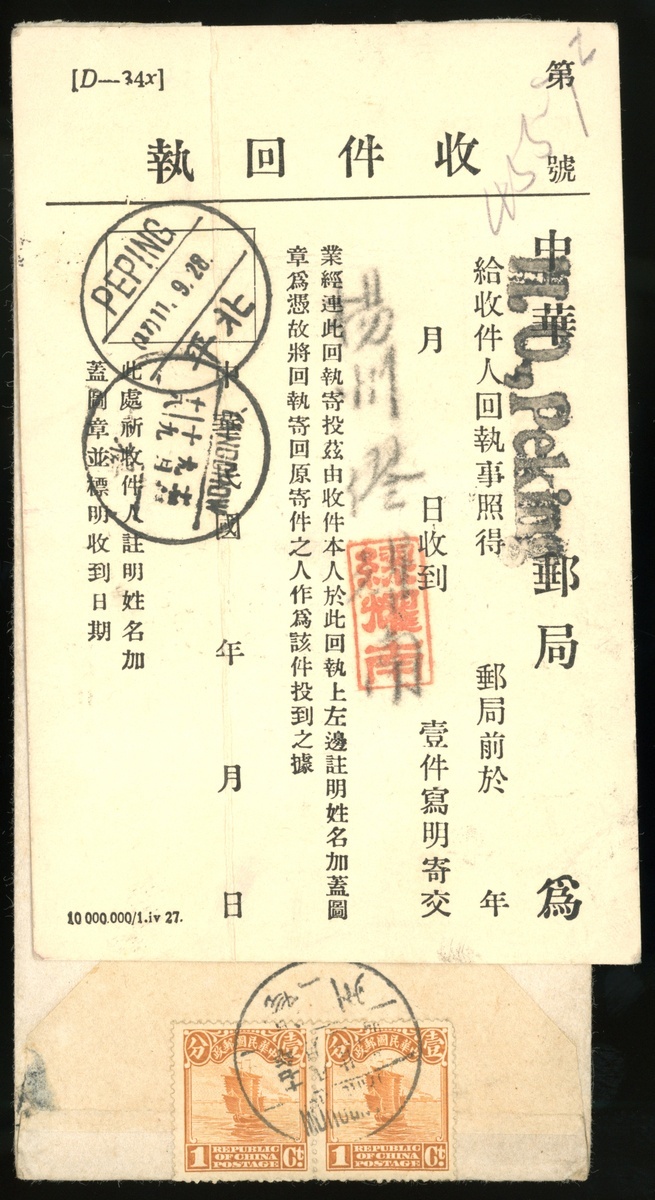 [D—34x]
第
號
收件回執
中華郵局爲
H.O, Peking
給收件人回執事照得 郵局前於 年
月 日收到 壹件寫明寄交
業經連此回執寄投茲由收件本人於此回執上左邊註明姓名加蓋圖
章爲憑故將回執寄回原寄件之人作爲該件投到之據
中華民國 年 月 日
此處祈收件人註明姓名加
蓋圖章並標明收到日期
PEPING
(17)11. 9. 28.
北平
10 000.000/1.iv 27.
分 中華民國郵政 壹
1 REPUBLIC OF CHINA POSTAGE Ct
分 中華民國郵政 壹
1 REPUBLIC OF CHINA POSTAGE Ct